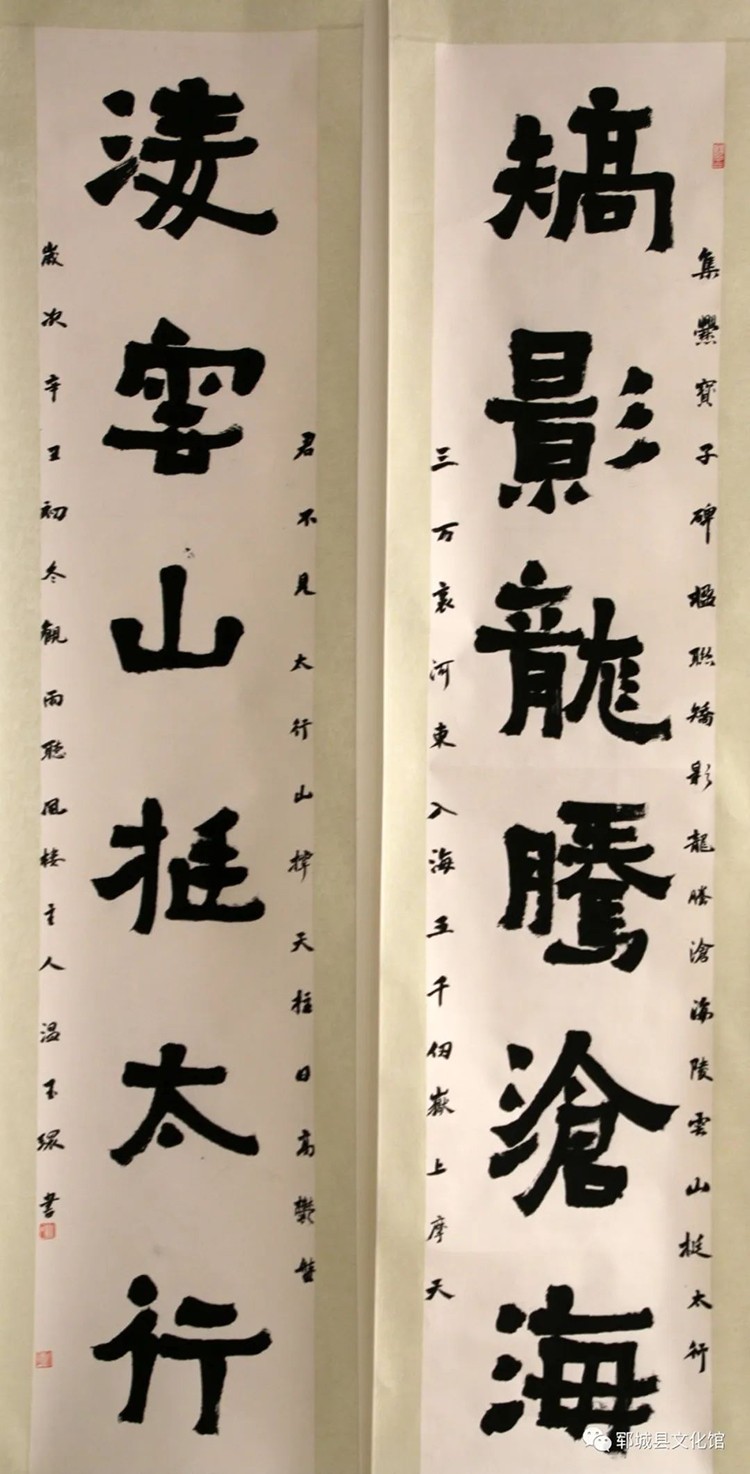 集爨寶子碑楹聯矯影龍騰滄海陵雲山挺太行
矯影龍騰滄海
三万裏河東入海五千仞嶽上摩天
君不見太行山撐天柱日高
淩雲山挺太行
歲次辛丑初冬觀雨聽風樓主人温玉環書
郓城县文化馆